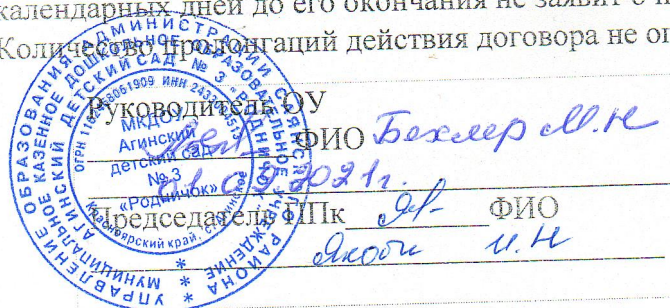 календарных дней до его окончания не заявит о
Количество пролонгаций действия договора не
Руководитель ОУ
ФИО Бехлер М.Н
2021г.
Председатель ППк ФИО
Якоби И.Н
УПРАВЛЕНИЕ ОБРАЗОВАНИЯ АДМИНИСТРАЦИИ САЯНСКОГО РАЙОНА
МУНИЦИПАЛЬНОЕ КАЗЕННОЕ ДОШКОЛЬНОЕ ОБРАЗОВАТЕЛЬНОЕ УЧРЕЖДЕНИЕ
АГИНСКИЙ ДЕТСКИЙ САД № 3 "РОДНИЧОК"
ОГРН ИНН
МКДОУ
Агинский
детский сад
№ 3
«Родничок»
Красноярский край, с. Агинское